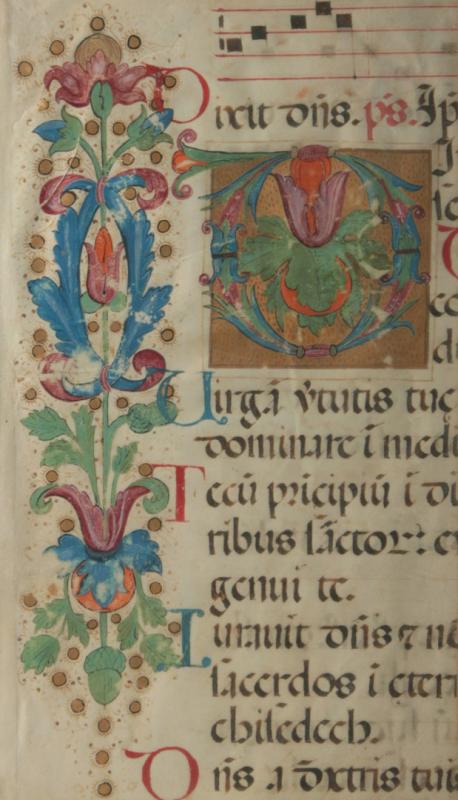 Dixit dñs. ps. Ip
Uirga v̄tutis tue
dominare ĩ medi
Tecũ prĩcipiũ ĩ di
ribus sãctoꝝ: ex
genui te.
Iurauit dñs ⁊ nõ
sacerdos ĩ etern
chisedech.
Dñs a dextris tuis